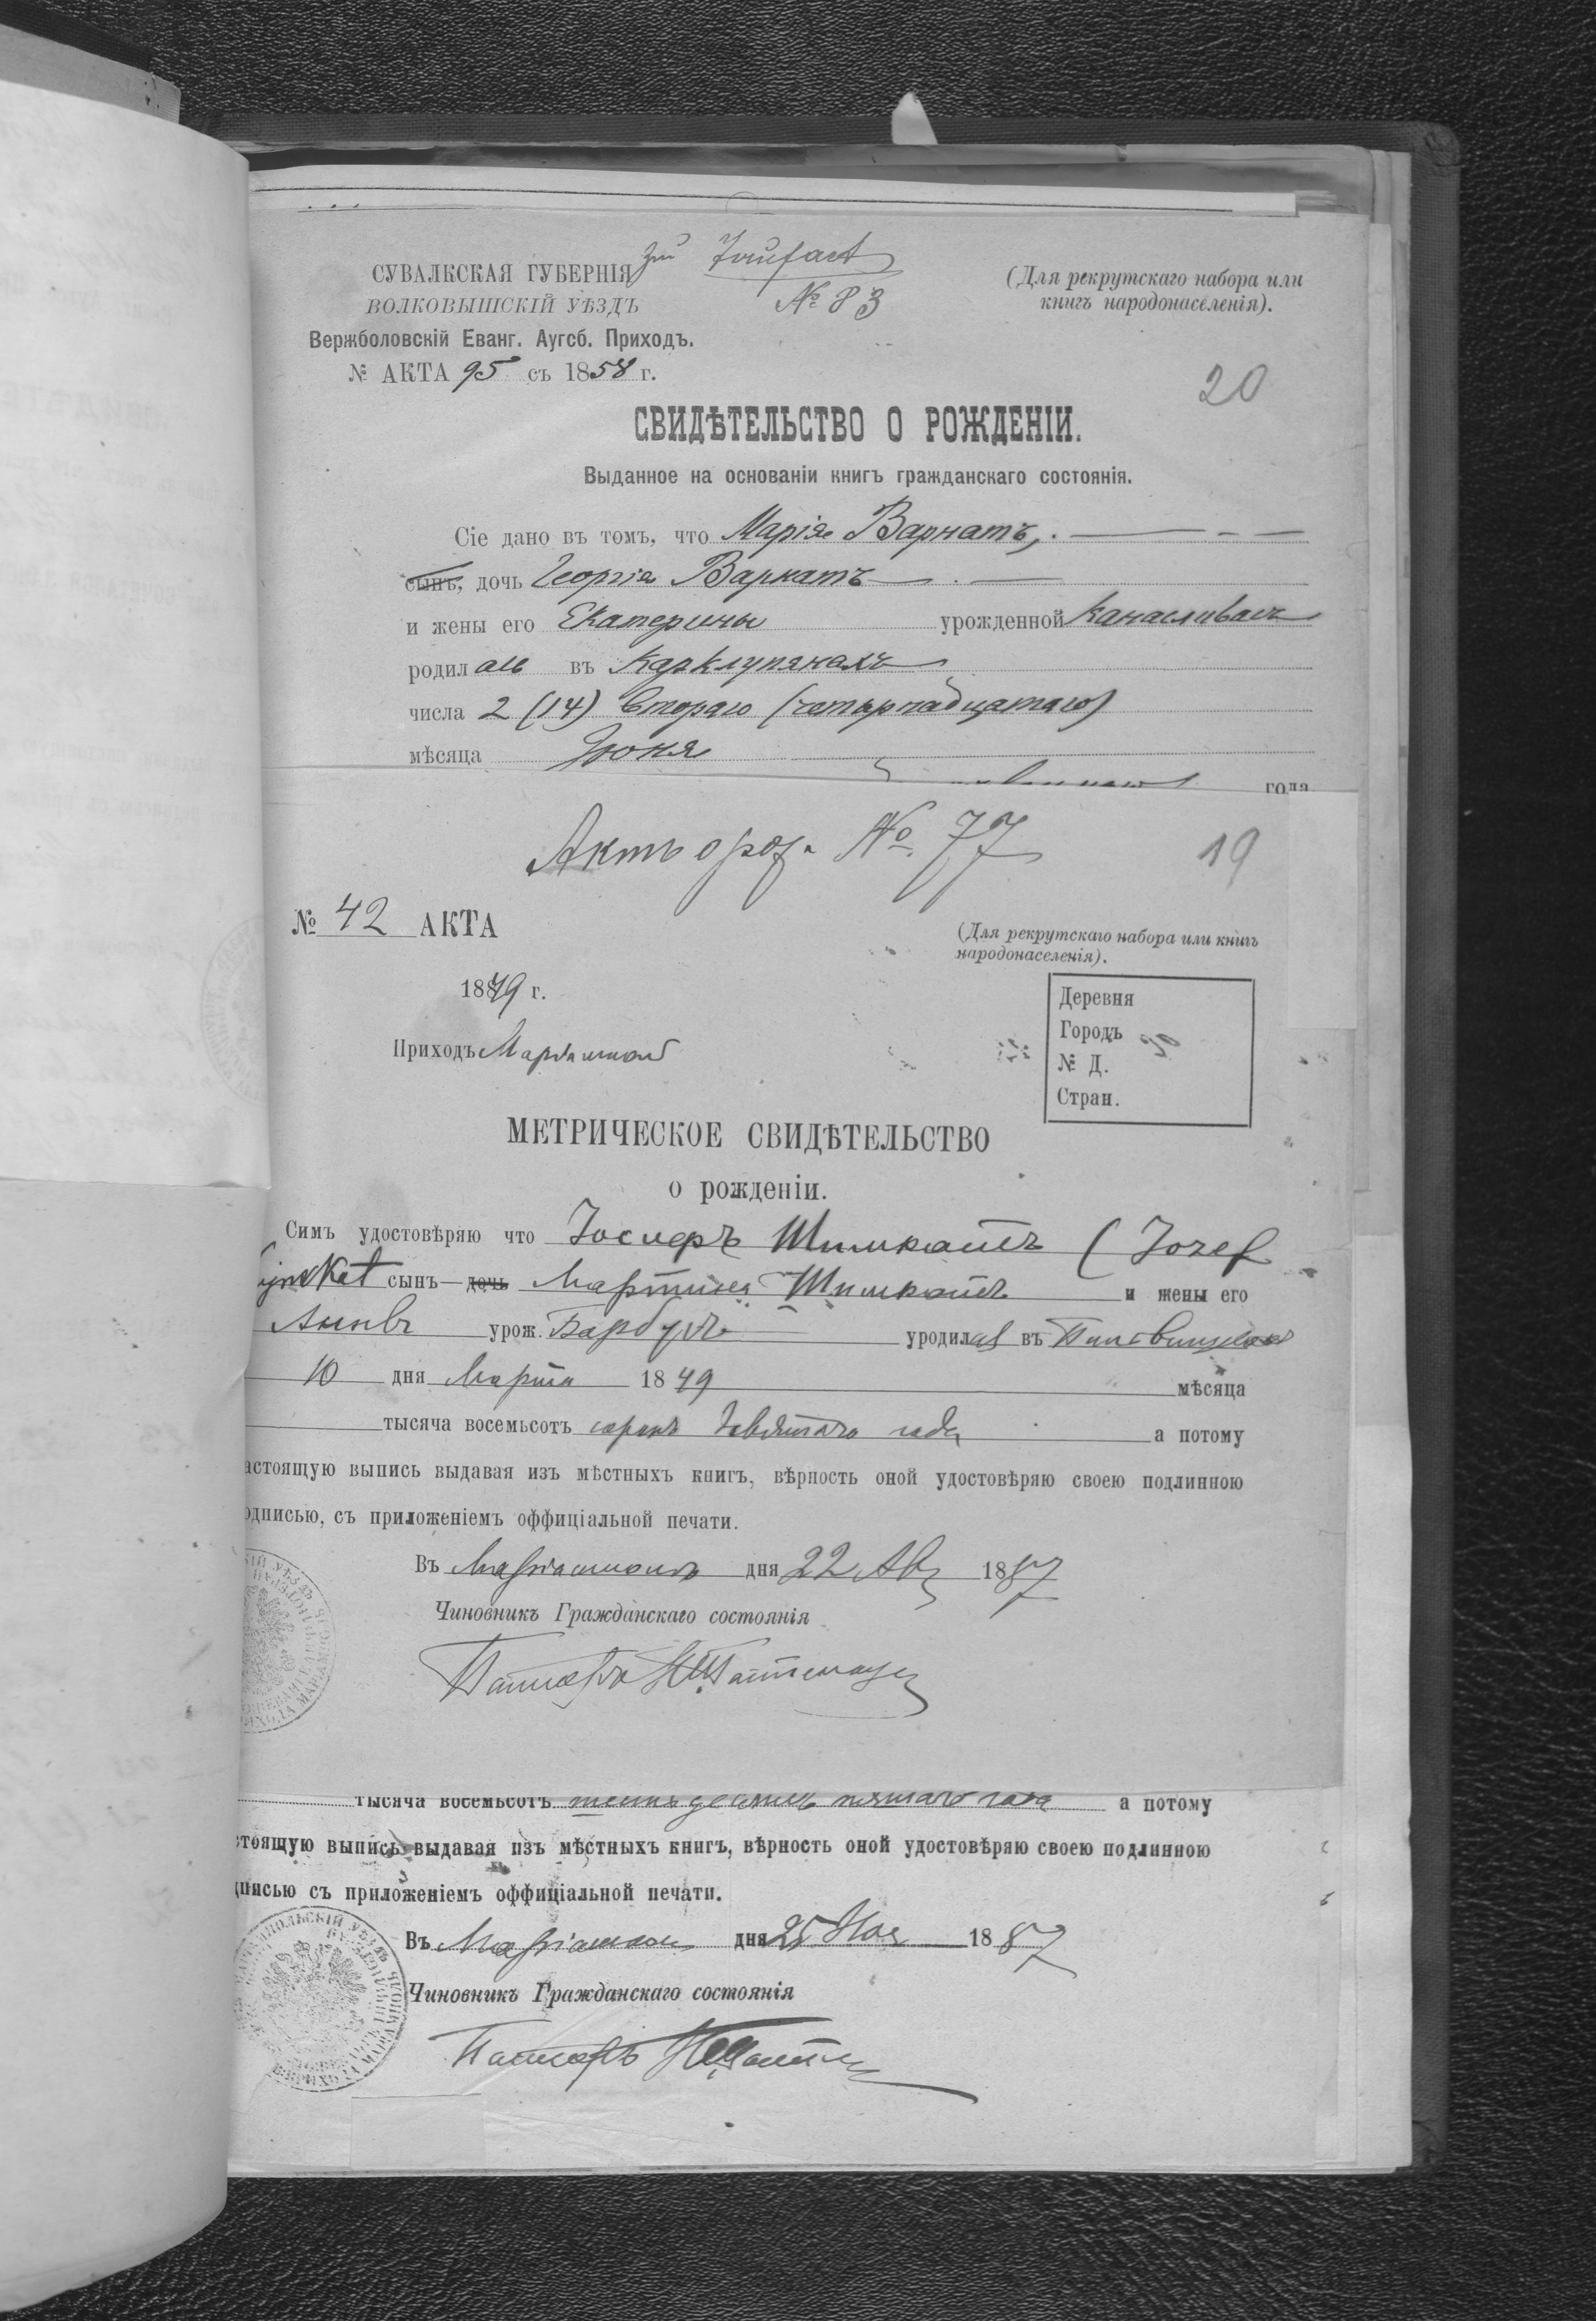 СУВАЛКСКАЯ ГУБЕРНІЯ zu Taufact
ВОЛКОВЫШСКІЙ УѢЗДЪ № 83
(Для рекрутскаго набора или
книгъ народонаселенія).
Вержболовскій Еванг. Аугсб. Приходъ.
№ АКТА 95 съ 1858 г.
20
СВИДѢТЕЛЬСТВО О РОЖДЕНІИ.
Выданное на основаніи книгъ гражданскаго состоянія.
Сіе дано въ томъ, что Марія Варнатъ,
сынъ, дочь Георгія Варнатъ
и жены его Екатерины урожденной
родилась въ Карклупянахъ
числа 2 (14) Втораго (четырнадцатаго)
мѣсяца Іюня
года
Актъ о рож. № 77
19
№ 42 АКТА
(Для рекрутскаго набора или книгъ
народонаселенія).
1849 г.
Деревня
Городъ
№ Д.
Стран.
Приходъ Маріамполь
МЕТРИЧЕСКОЕ СВИДѢТЕЛЬСТВО
о рожденіи.
Симъ удостовѣряю что Іосифъ Шимкатъ (Jozef
сынъ дочь Мартина Шимкатъ и жены его
Анны урож. уродился въ
10 дня Марта 1849 мѣсяца
тысяча восемьсотъ сорокъ девятаго года а потому
астоящую выпись выдавая изъ мѣстныхъ книгъ, вѣрность оной удостовѣряю своею подлинною
одписью, съ приложеніемъ оффиціальной печати.
Въ Маріамполь дня 22 Авг 1887
Чиновникъ Гражданскаго состоянія
Пасторъ
тысяча восемьсотъ шестьдесятъ пятаго года а потому
стоящую выпись выдавая изъ мѣстныхъ книгъ, вѣрность оной удостовѣряю своею подлинною
дписью съ приложеніемъ оффиціальной печати.
Въ Маріамполь дня 25 Ноя 1887
Чиновникъ Гражданскаго состоянія
Пасторъ